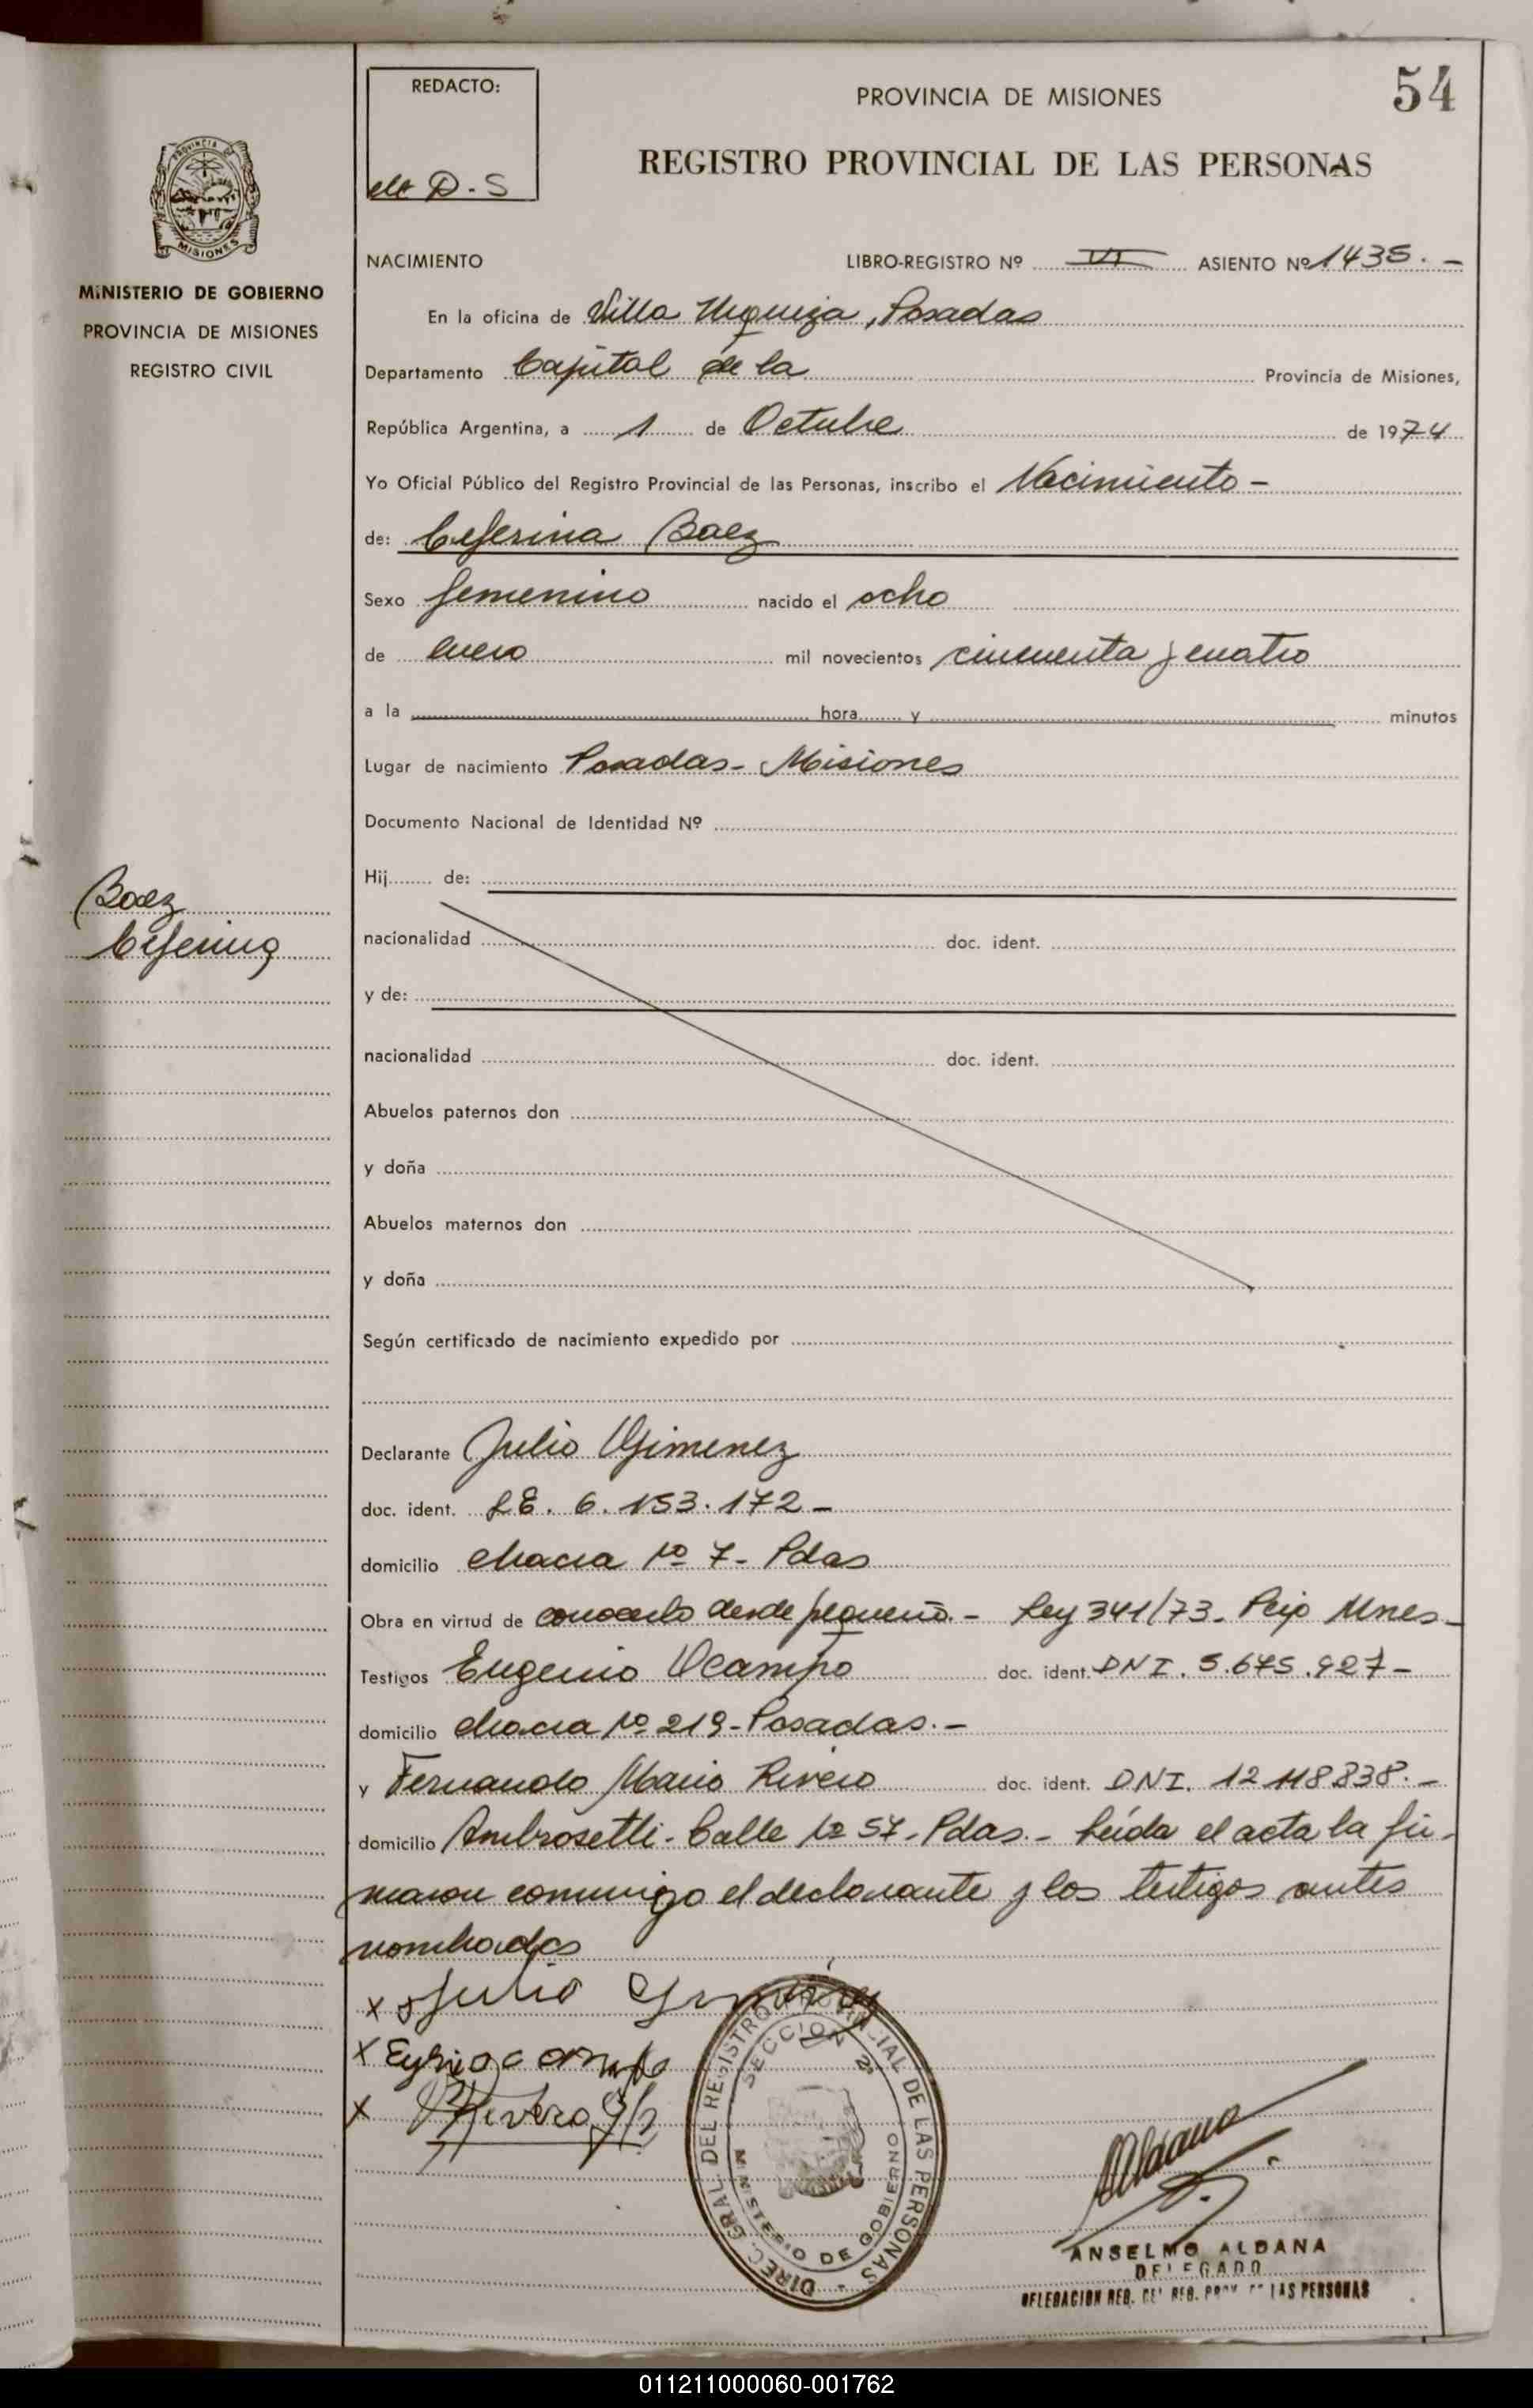 54
REDACTO:
D. S
PROVINCIA DE MISIONES
REGISTRO PROVINCIAL DE LAS PERSONAS
MISIONES
MINISTERIO DE GOBIERNO
PROVINCIA DE MISIONES
REGISTRO CIVIL
NACIMIENTO LIBRO-REGISTRO Nº VI ASIENTO Nº 1435.-
En la oficina de Villa Urquiza, Posadas
Departamento Capital de la Provincia de Misiones,
República Argentina, a 1 de Octubre de 1974
Yo Oficial Público del Registro Provincial de las Personas, inscribo el Nacimiento-
de: Ceferina Baez
Sexo femenino nacido el ocho
de enero mil novecientos cincuenta y cuatro
a la hora y minutos
Lugar de nacimiento Posadas- Misiones
Documento Nacional de Identidad Nº
Baez
Ceferina
Hij de:
nacionalidad doc. ident.
y de:
nacionalidad doc. ident.
Abuelos paternos don
y doña
Abuelos maternos don
y doña
Según certificado de nacimiento expedido por
Declarante Julio Gimenez
doc. ident. LE. 6.153.172-
domicilio Chacra Nº 7- Pdas
Obra en virtud de conocerlo desde pequeño.- Ley 341/73-
Testigos Eugenio Ocampo doc. ident. DNI. 5.675.927-
domicilio Chacra Nº 219-Posadas.-
y Fernando Mario Rivero doc. ident. DNI. 12118838.-
domicilio Ambrosetti- Calle Nº 57- Pdas.- Leída el acta la fir-
maron conmigo el declarante y los testigos antes
nombrados
x Julio Gimenez
x
x Rivero
DIREC. GRAL. DEL REGISTRO PROVINCIAL DE LAS PERSONAS
SECCION 2ª
MINISTERIO DE GOBIERNO
Aldana
ANSELMO ALDANA
DELEGADO
DELEGACION REG. DEL REG. PROV. DE LAS PERSONAS
011211000060-001762